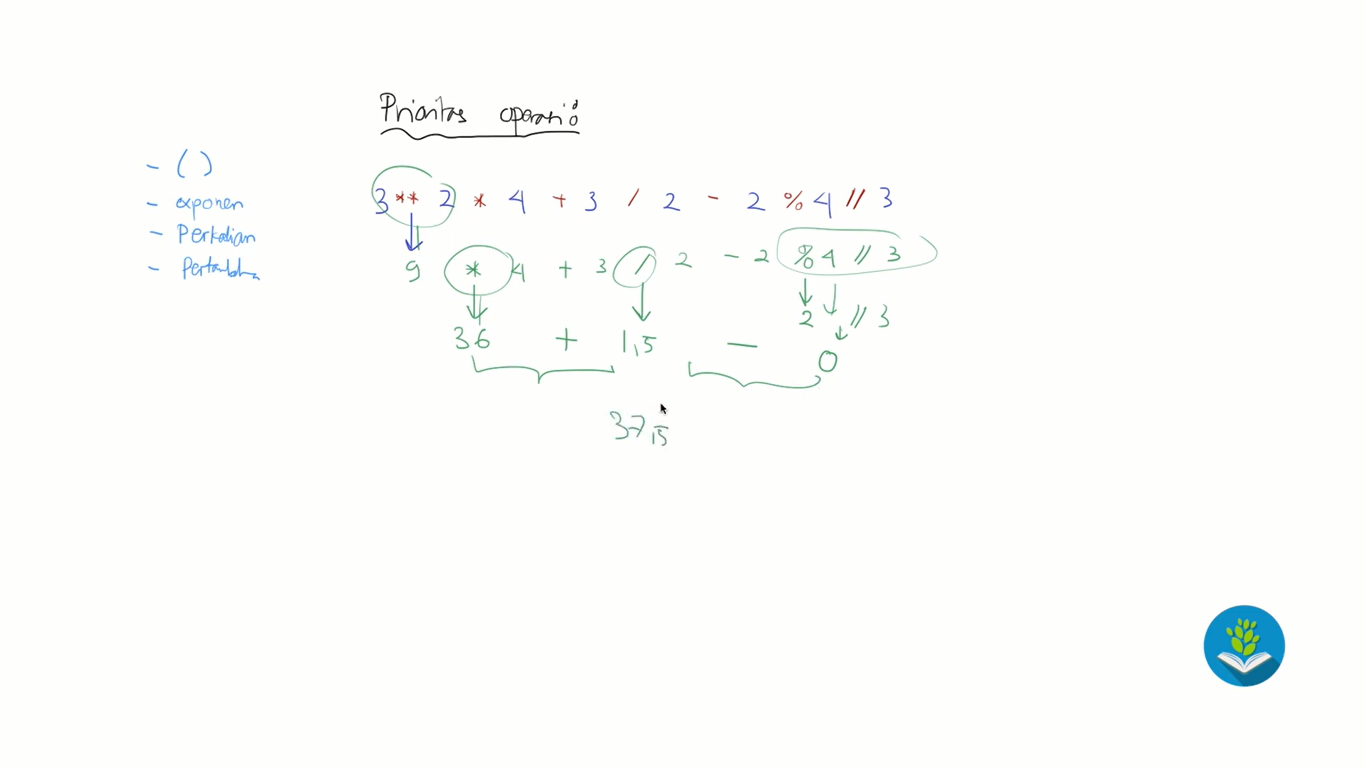 Prioritas operasi
- ( )
- exponen
- Perkalian
- Pertambahan
3 ** 2 * 4 + 3 / 2 - 2 % 4 // 3
9 * 4 + 3 / 2 - 2 % 4 // 3
2 // 3
36 + 1,5 - 0
37,5